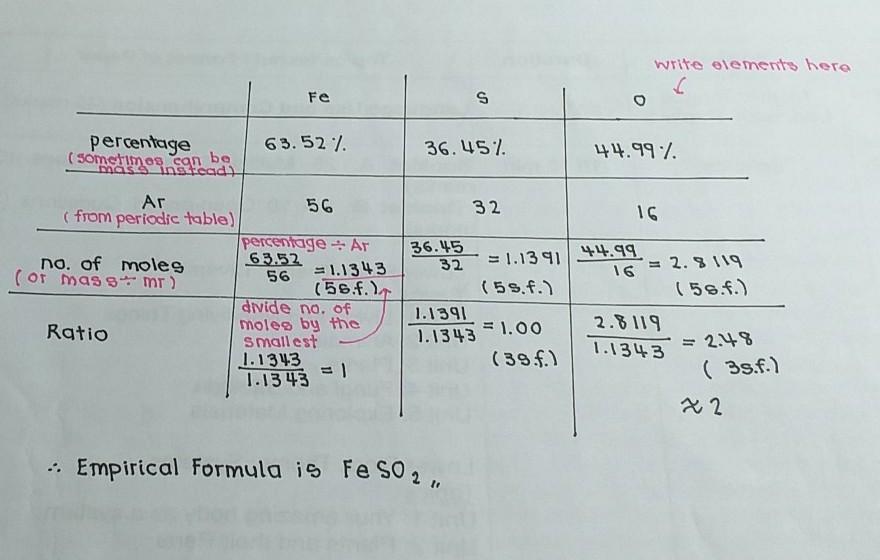 write elements here
Fe S O
percentage 63.52% 36.45% 44.99%
(sometimes can be
mass instead)
Ar 56 32 16
(from periodic table)
percentage ÷ Ar
no. of moles 63.52/56 = 1.1343 36.45/32 = 1.1391 44.99/16 = 2.8119
(or mass ÷ mr) (5s.f.) (5s.f.) (5s.f.)
Ratio divide no. of
moles by the
smallest
1.1343/1.1343 = 1 1.1391/1.1343 = 1.00 2.8119/1.1343 = 2.48
(3s.f.) (3s.f.)
≈ 2
∴ Empirical Formula is FeSO₂ ,,